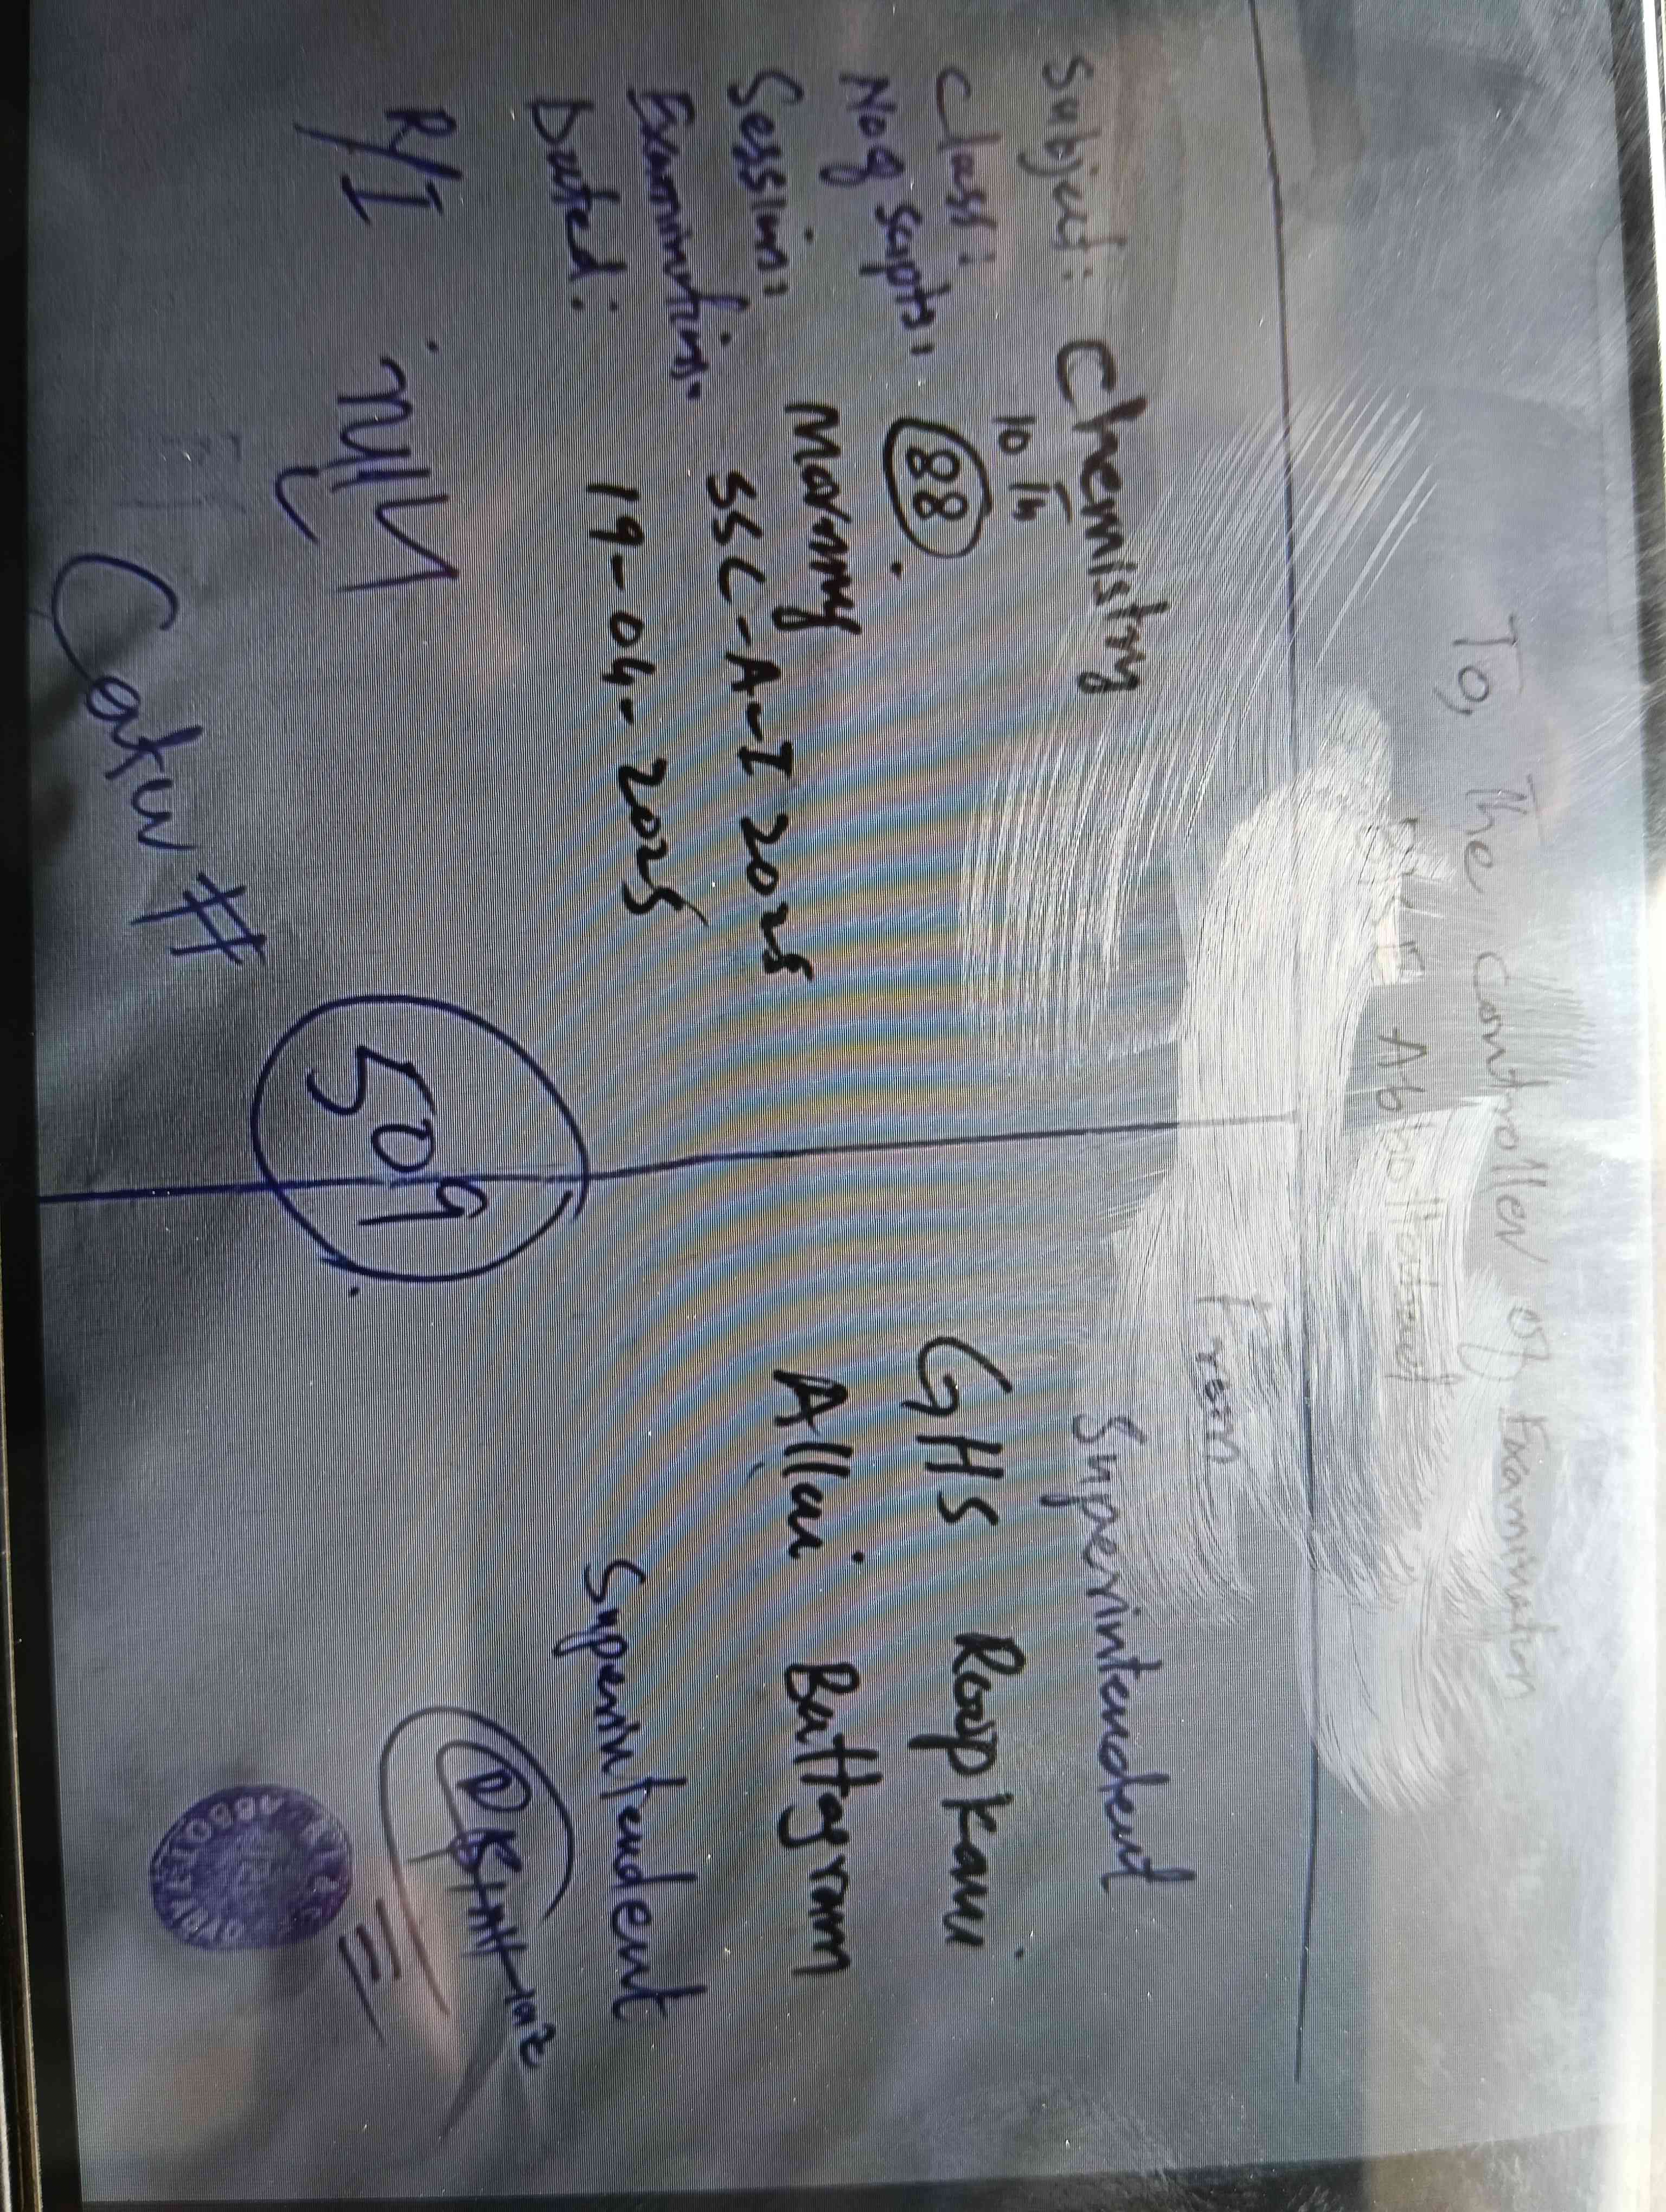 To, The Controller of Examination
BISE Abbottabad
Subject: Chemistry
Class: 10th
No of scripts: 88
Session: Morning
Examination: SSC-A-I 2025
Dated: 19-04-2025
R/I Nil
#
509
From
Superintendent
GHS Roopkani
Allai Battagram
Superintendent